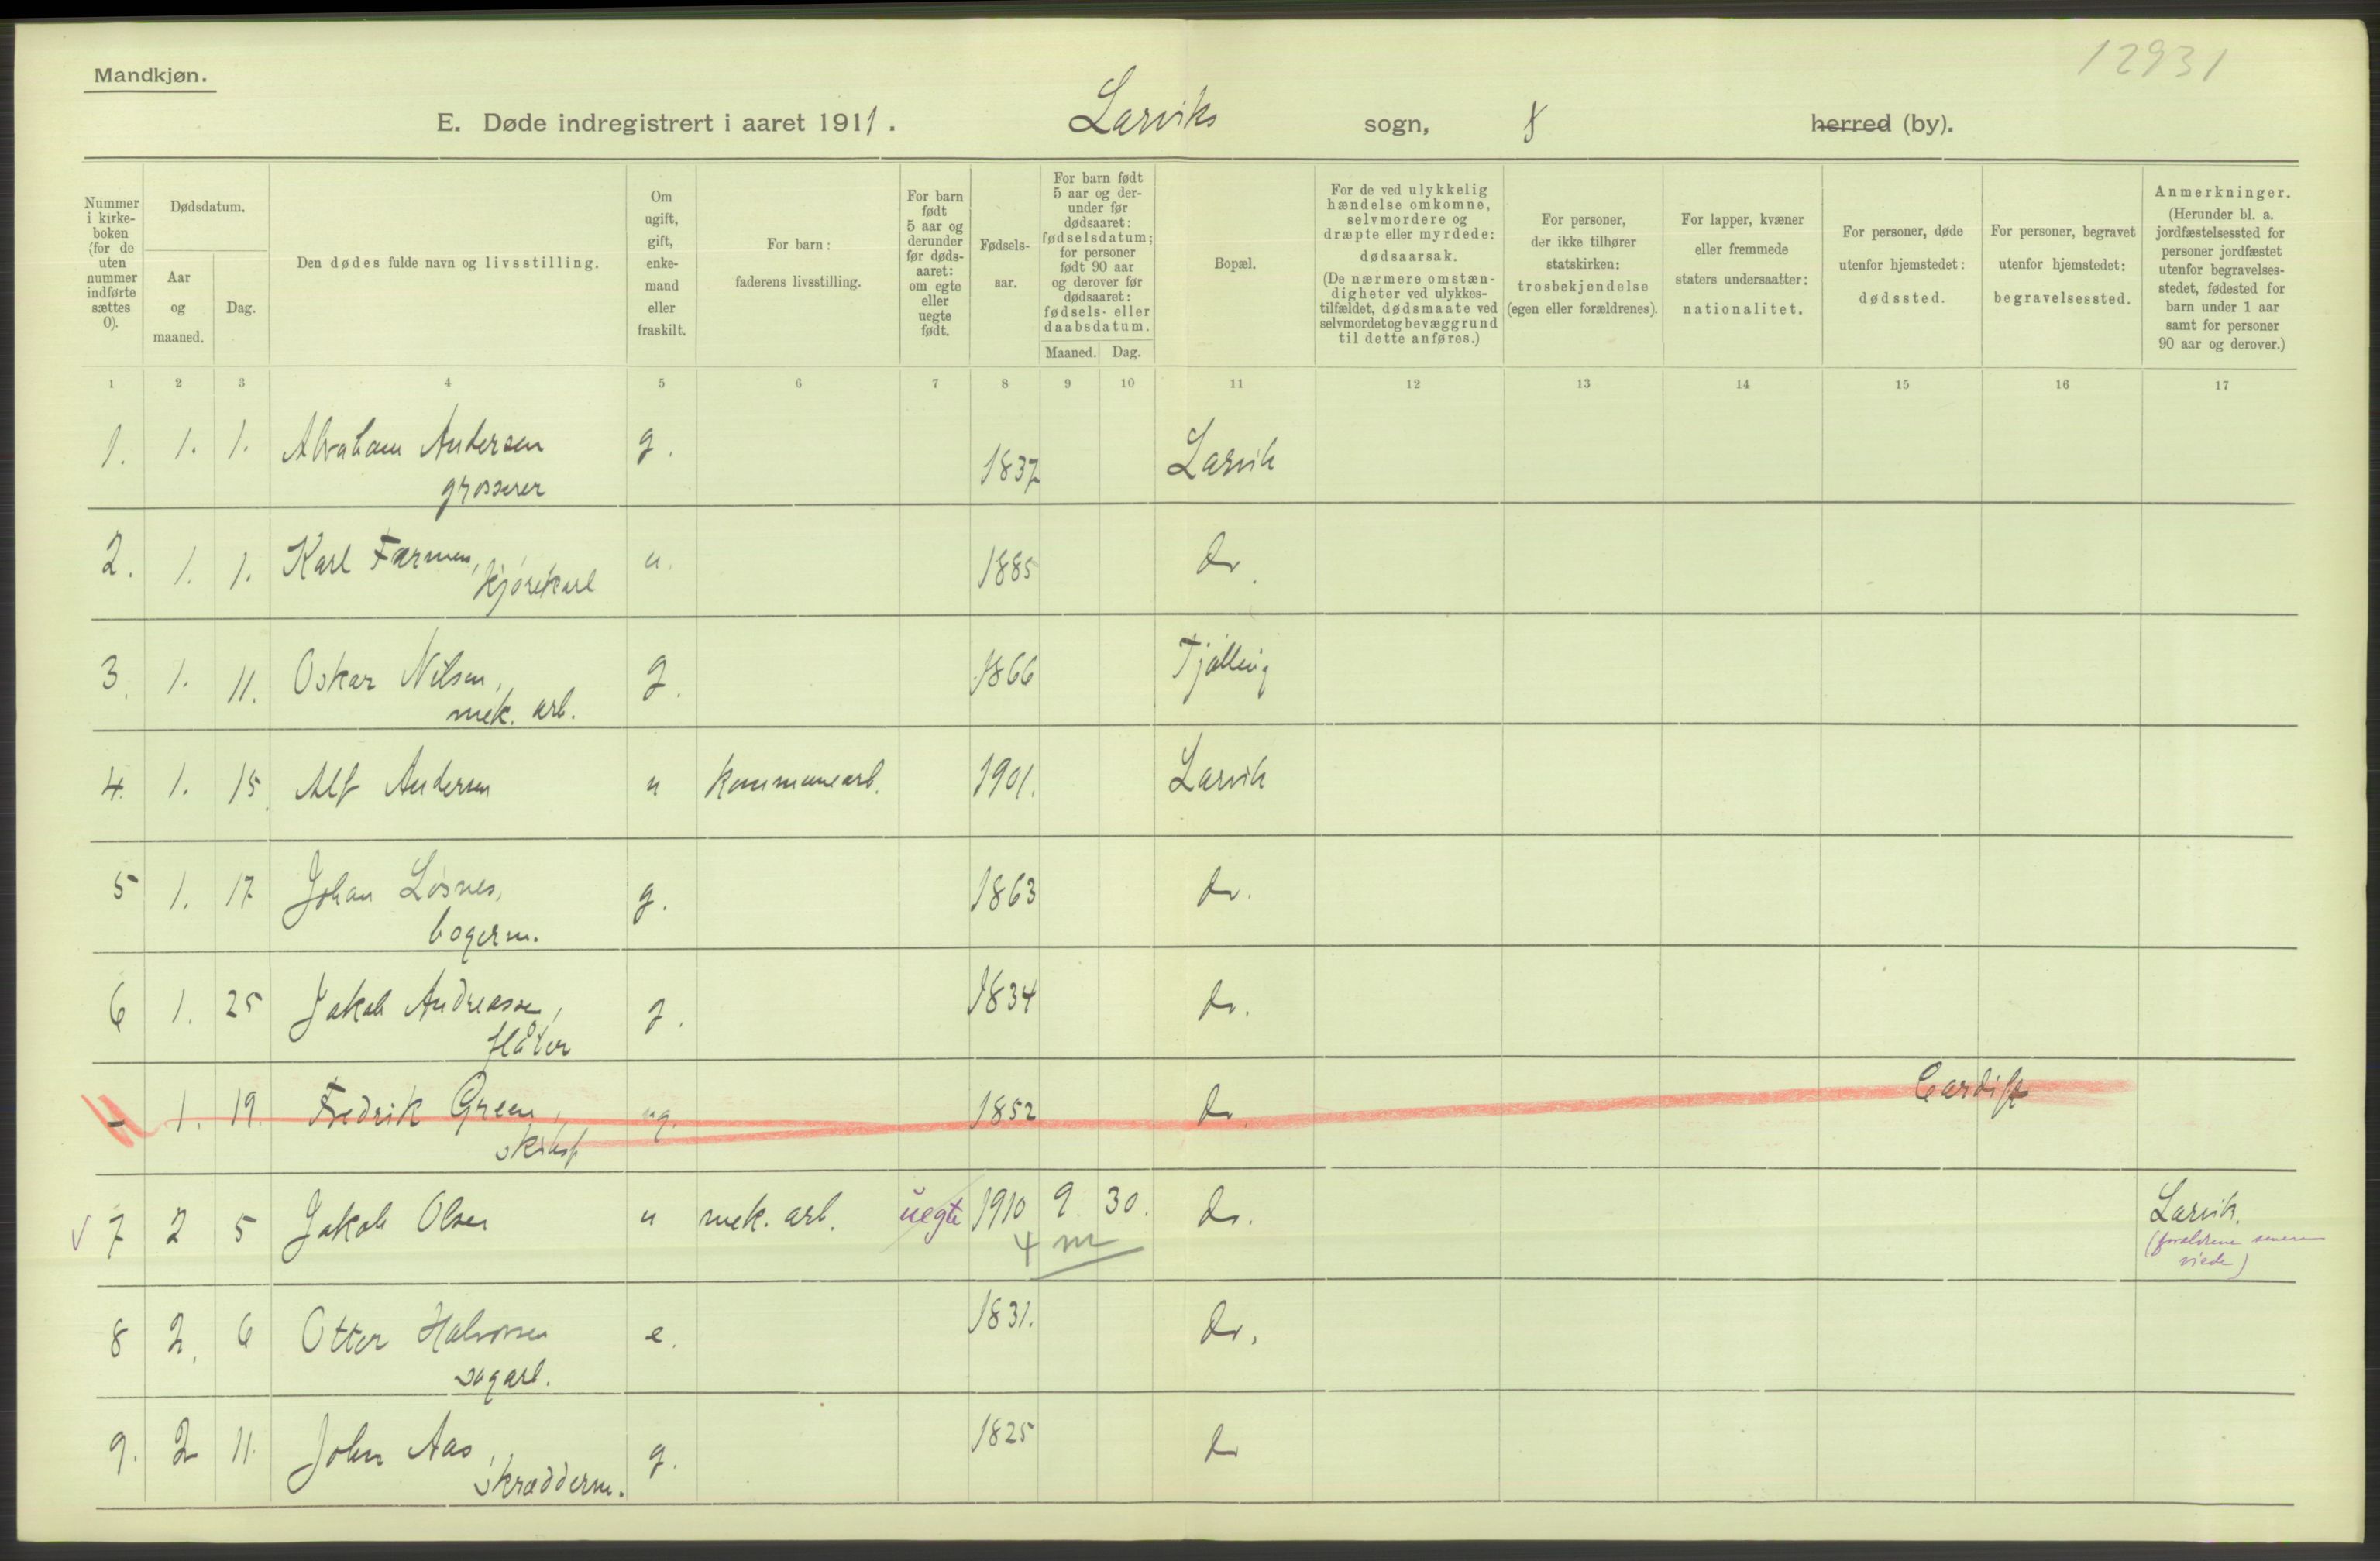 12931
Mandkjøn.
E. Døde indregistrert i aaret 1911. Larviks sogn, herred (by).
Nummer i kirke-boken (for de uten nummer indførte sættes 0).
Dødsdatum.
Aar og maaned.
Dag.
Den dødes fulde navn og livsstilling.
Om ugift, gift, enke-mand eller fraskilt.
For barn: faderens livsstilling.
For barn født 5 aar og derunder før døds-aaret: om egte eller uegte født.
Fødsels-aar.
For barn født 5 aar og der-under før dødsaaret: fødselsdatum; for personer født 90 aar og derover før dødsaaret: fødsels- eller daabsdatum.
Maaned. Dag.
Bopæl.
For de ved ulykkelig hændelse omkomne, selvmordere og dræpte eller myrdede: dødsaarsak.
(De nærmere omstæn-digheter ved ulykkes-tilfældet, dødsmaate ved selvmordet og bevæggrund til dette anføres.)
For personer, der ikke tilhører statskirken: trosbekjendelse (egen eller forældrenes).
For lapper, kvæner eller fremmede staters undersaatter: nationalitet.
For personer, døde utenfor hjemstedet: dødssted.
For personer, begravet utenfor hjemstedet: begravelsessted.
Anmerkninger.
(Herunder bl. a. jordfæstelsessted for personer jordfæstet utenfor begravelses-stedet, fødested for barn under 1 aar samt for personer 90 aar og derover.)
1 2 3 4 5 6 7 8 9 10 11 12 13 14 15 16 17
1. 1. 1. Abraham Andersen g. 1837 Larvik
grosserer
2. 1. 1. Karl Farmen, u. 1885 do.
kjørekarl
3. 1. 11. Oskar Nilsen, g. 1866 Tjølling
mek. arb.
4. 1. 15. Alf Andersen u kommunearb. 1901. Larvik
5 1. 17 Johan Løsnes, g. 1863 do.
bagerm.
6 1. 25 Jakob Andreassen, g. 1834 do.
flåter
1. 19. Fredrik Green, ug. 1852 do. Cardiff
7 2 5 Jakob Olsen u mek. arb. uegte 1910 9. 30. do. Larvik.
4 m
(forældrene senere
viede)
8 2. 6 Otter Halvorsen e. 1831. do.
sagarb.
9. 2 11. John Aas, g. 1825 do
skrædderm.